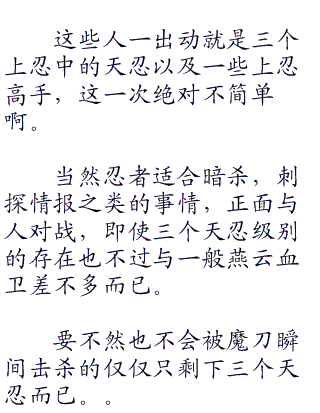 这些人一出动就是三个
上忍中的天忍以及一些上忍
高手，这一次绝对不简单
啊。
当然忍者适合暗杀，刺
探情报之类的事情，正面与
人对战，即使三个天忍级别
的存在也不过与一般燕云血
卫差不多而已。
要不然也不会被魔刀瞬
间击杀的仅仅只剩下三个天
忍而已。。